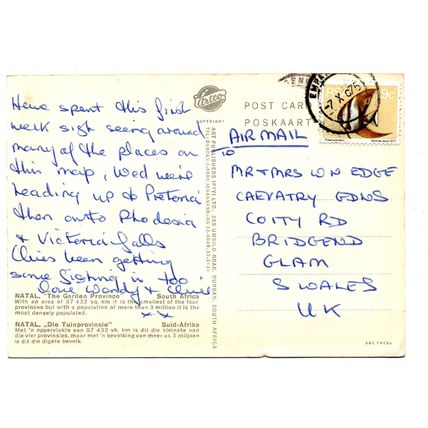 Have spent this first
week sight seeing around
many of the places on
this map, Wed we're
heading up to Pretoria
then onto Rhodesia
& Victoria falls
Clives been getting
some fishing in too
love Wendy & Clive
xx
NATAL, "The Garden Province" South Africa
With an area of 87 432 sq. km it is the smallest of the four
provinces but with a population of more than 3 million it is the
most densely populated.
NATAL, „Die Tuinprovinsie" Suid-Afrika
Met 'n oppervlakte van 87 432 vk. km is dit die kleinste van
die vier provinsies, maar met 'n bevolking van meer as 3 miljoen
is dit die digste bevolk.
Artco
COPYRIGHT
ART PUBLISHERS (PTY) LTD. 265 UMGILO ROAD, DURBAN, SOUTH AFRICA
POST CARD
POSKAART
AIR MAIL
TO
MR & MRS W N EDGE
CAEVATRY GDNS
COITY RD
BRIDGEND
GLAM
S WALES
UK
9c
7 X 075